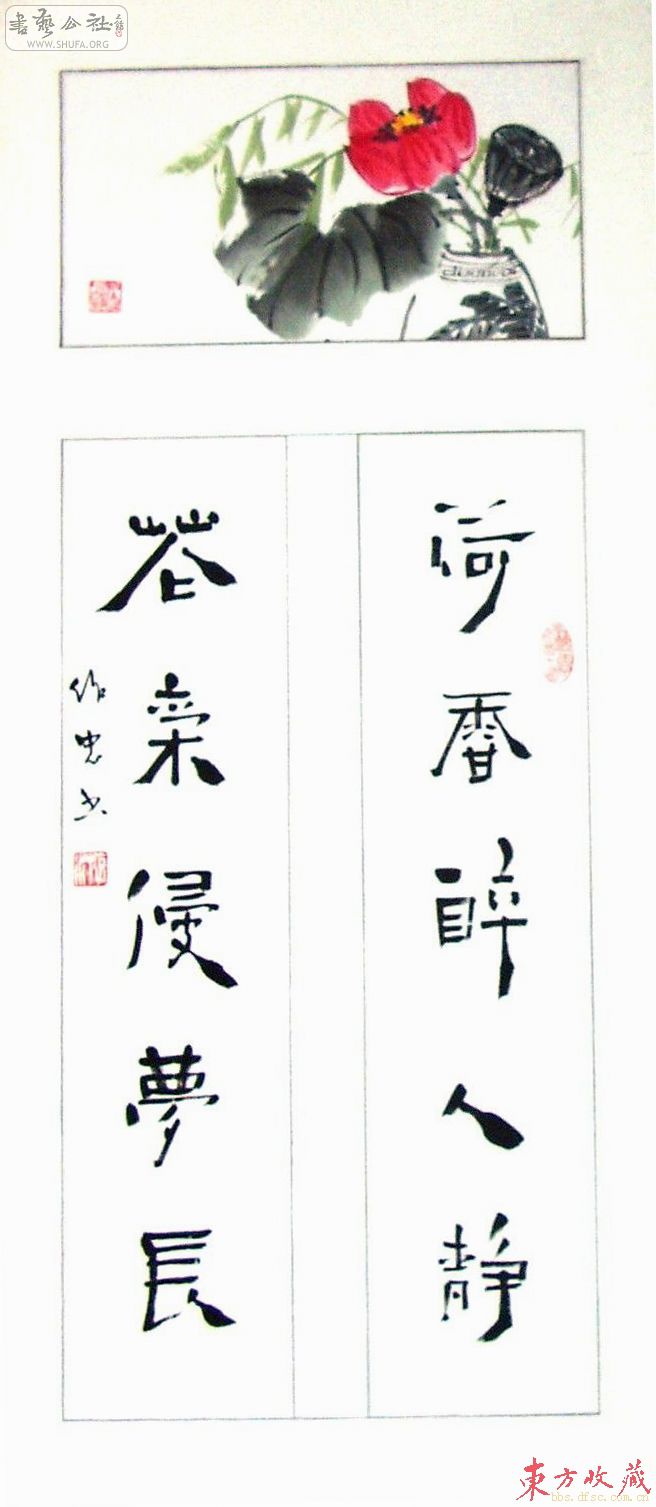 書藝公社
WWW.SHUFA.ORG
荷香醉人静
花 侵夢長
作忠书
東方收藏
bbs.dfsc.com.cn